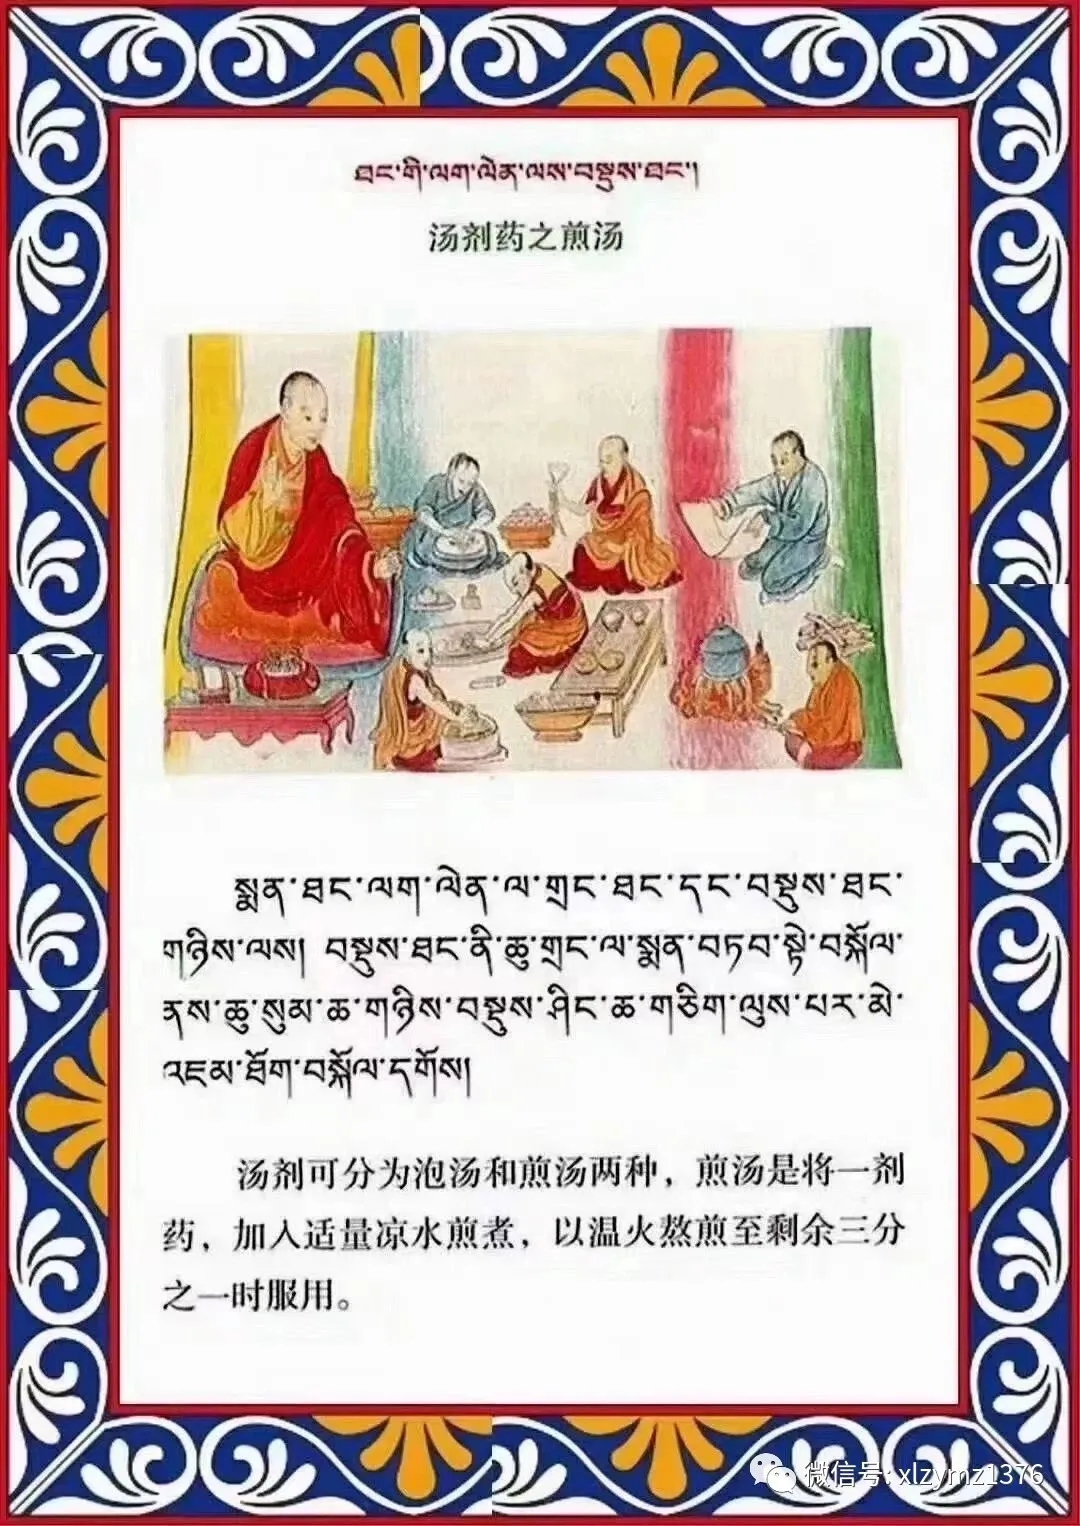 ཐང་གི་ལག་ལེན་ལས་བསྡུས་ཐང་།
汤剂药之煎汤
སྨན་ཐང་ལག་ལེན་ལ་གྲང་ཐང་དང་བསྡུས་ཐང་
གཉིས་ལས། བསྡུས་ཐང་ནི་ཆུ་གྲང་ལ་སྨན་བཏབ་སྟེ་བསྐོལ་
ནས་ཆུ་སུམ་ཆ་གཉིས་བསྡུས་ཤིང་ཆ་གཅིག་ལུས་པར་མེ་
འཇམ་ཐོག་བསྐོལ་དགོས།
汤剂可分为泡汤和煎汤两种，煎汤是将一剂
药，加入适量凉水煎煮，以温火熬煎至剩余三分
之一时服用。
微信号: xlzymz1376